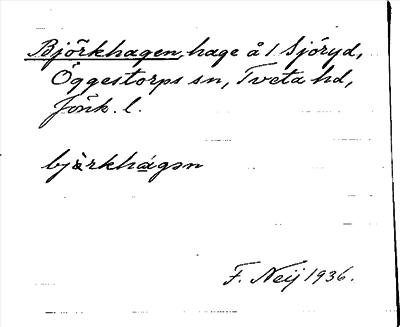 Björkhagen, hage å 1 Sjöryd,
Öggestorps sn, Tveta hd,
Jönk. l.
bjӧ̀rkhágən
F. Neij 1936.